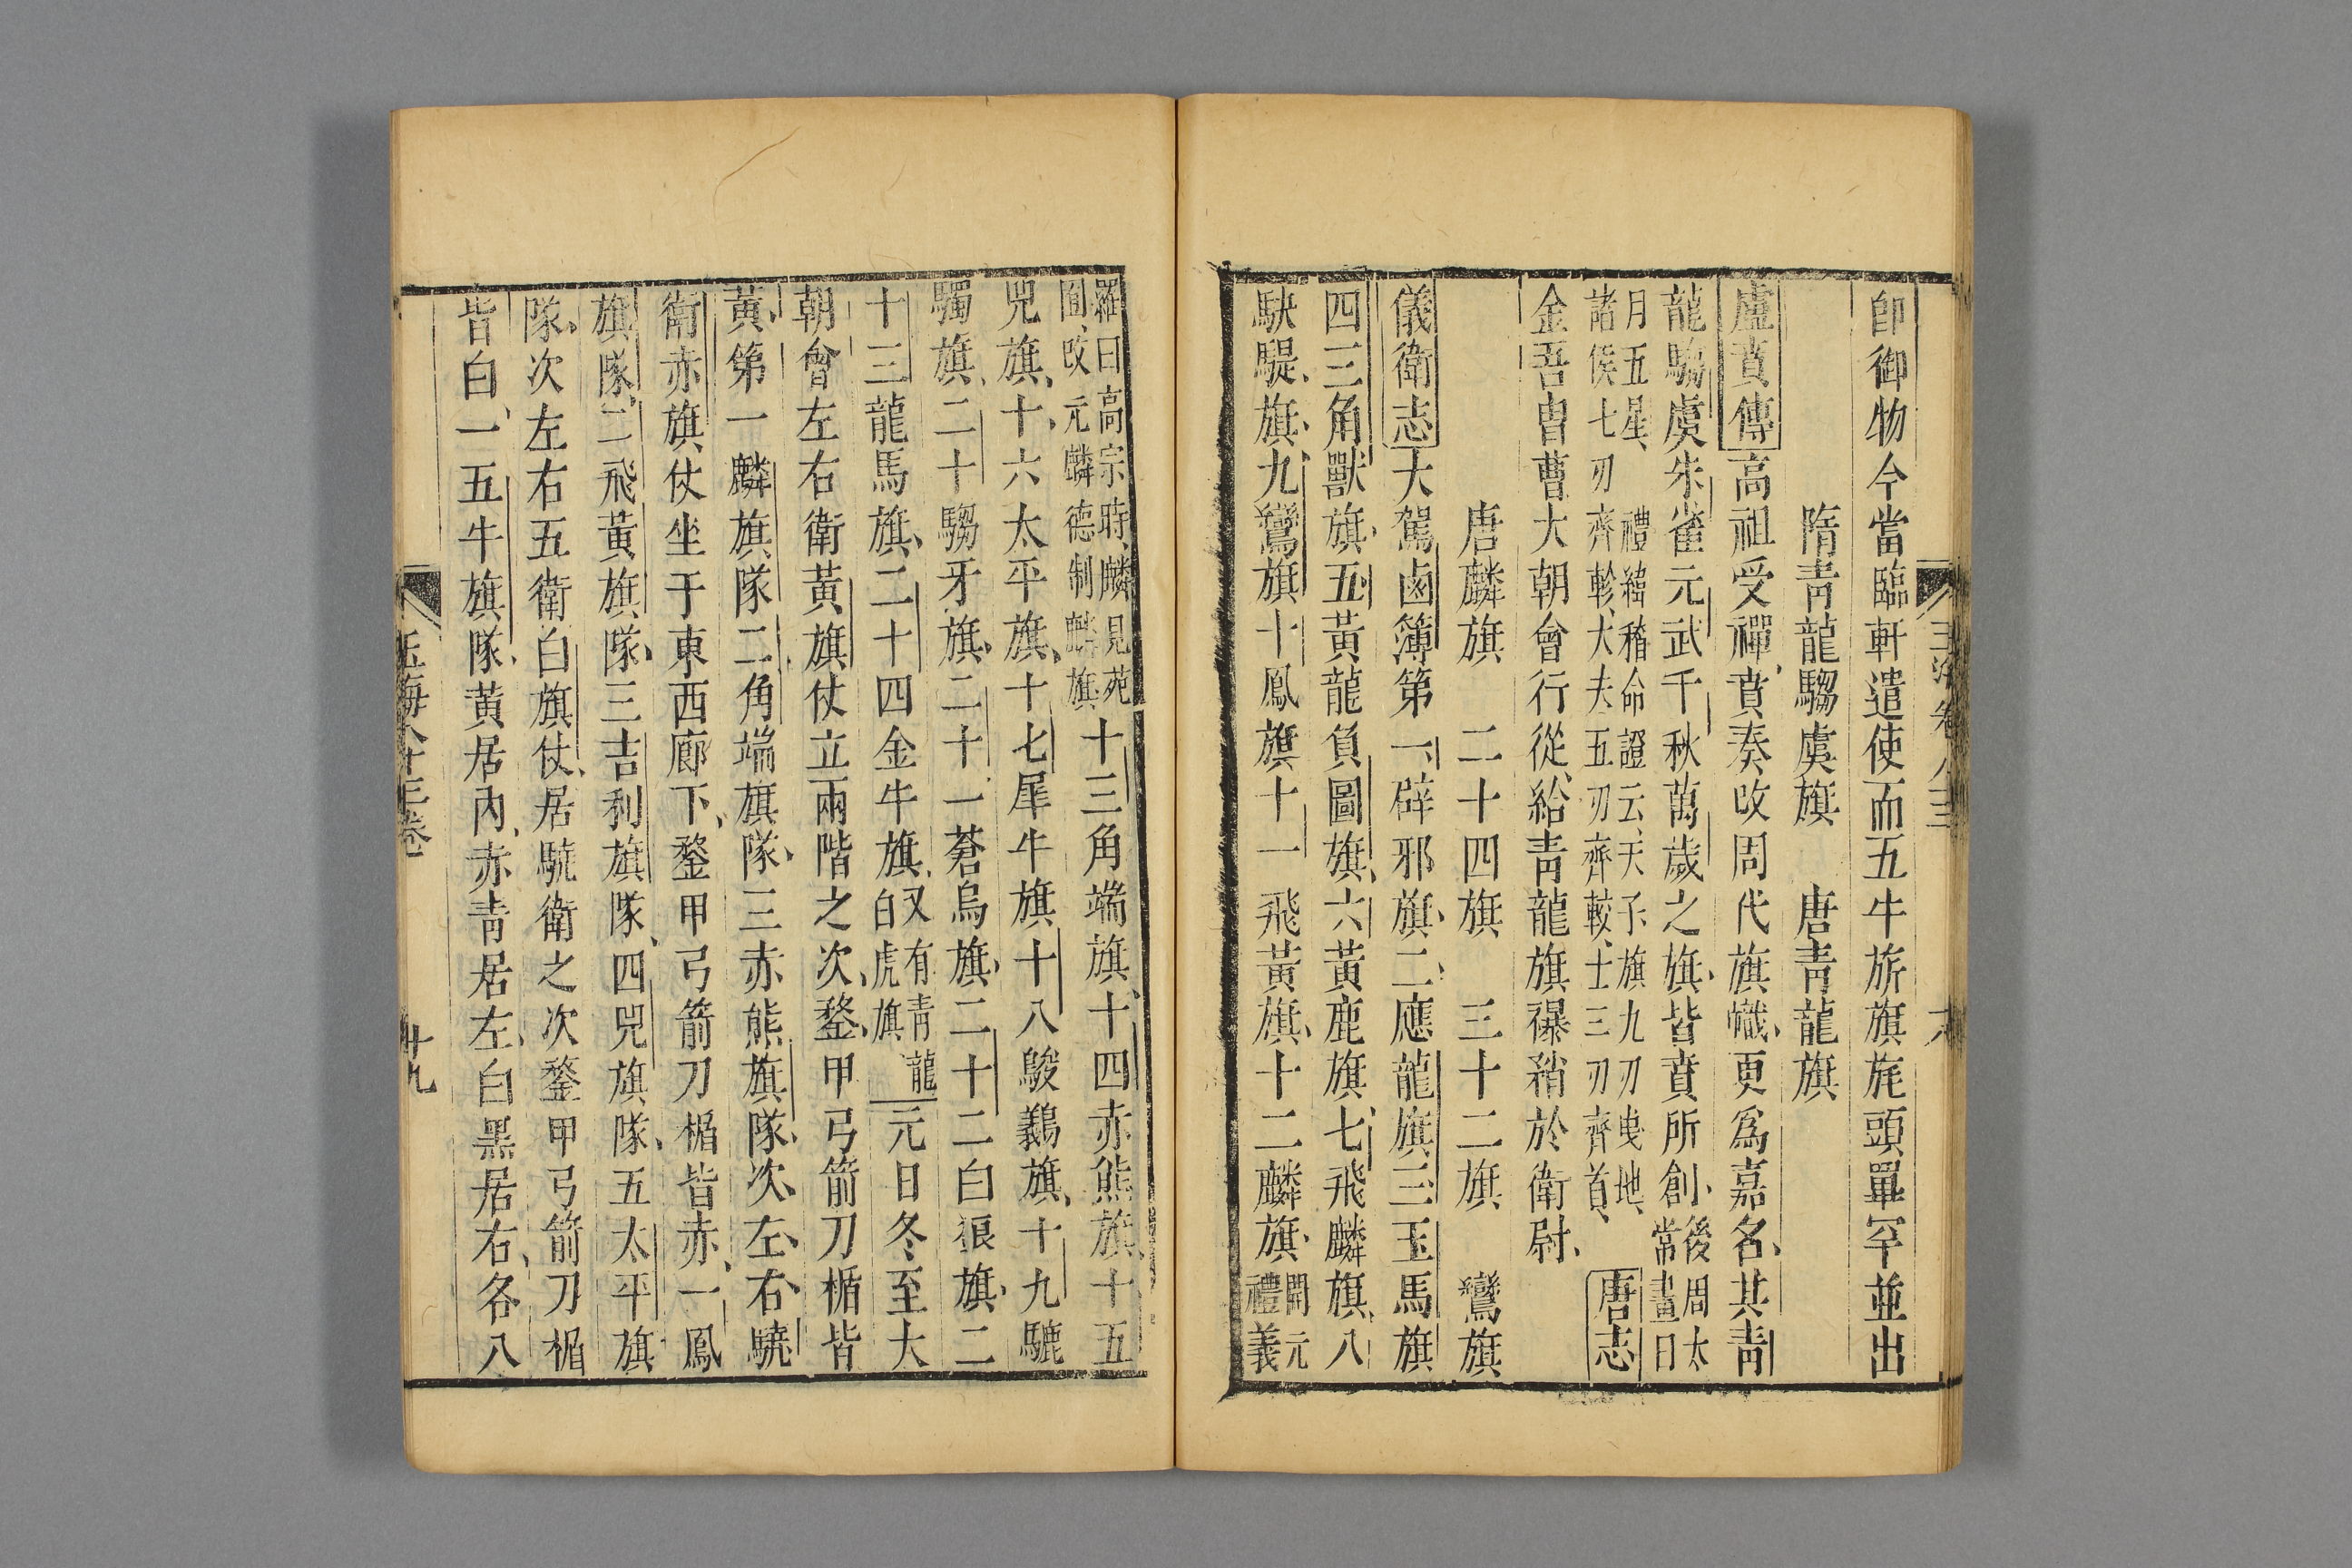 玉海卷八三 六
卽御物今當臨軒遣使而五牛旂旗旄頭罼罕並出
隋靑龍騶虞旗 唐靑龍旗
盧賁傳高祖受禪賁奏攺周代旗幟更爲嘉名其靑
龍騶虞朱雀元武千秋萬歲之旗皆賁所創後周太常畫日
月五星禮緯稽命證云天子旗九刃曵地
諸侯七刃齊軫大夫五刃齊較士三刃齊首 唐志
金吾冑曹大朝會行從給靑龍旗䂍矟於衛尉
唐麟旗 二十四旗 三十二旗 鸞旗
儀衛志大駕鹵簿第一辟邪旗二應龍旗三玉馬旗
四三角獸旗五黃龍負圖旗六黃鹿旗七飛麟旗八
駃騠旗九鸞旗十鳳旗十一飛黃旗十二麟旗開元禮義
羅曰高宗時麟見苑
囿攺元麟德制麟旗十三角端旗十四赤熊旗十五
兕旗十六太平旗十七犀牛旗十八鵔鸃旗十九騼
䮷旗二十騶牙旗二十一蒼烏旗二十二白狼旗二
十三龍馬旗二十四金牛旗又有靑龍白虎旗元日冬至大
朝會左右衛黃旗仗立兩階之次鍪甲弓箭刀楯皆
黃第一麟旗隊二角端旗隊三赤熊旗隊次左右驍
衛赤旗仗坐于東西廊下鍪甲弓箭刀楯皆赤一鳳
旗隊二飛黃旗隊三吉利旗隊四兕旗隊五太平旗
隊次左右五衛白旗仗居驍衛之次鍪甲弓箭刀楯
皆白一五牛旗隊黃居內赤靑居左白黑居右各八
玉海八十三卷 廿九